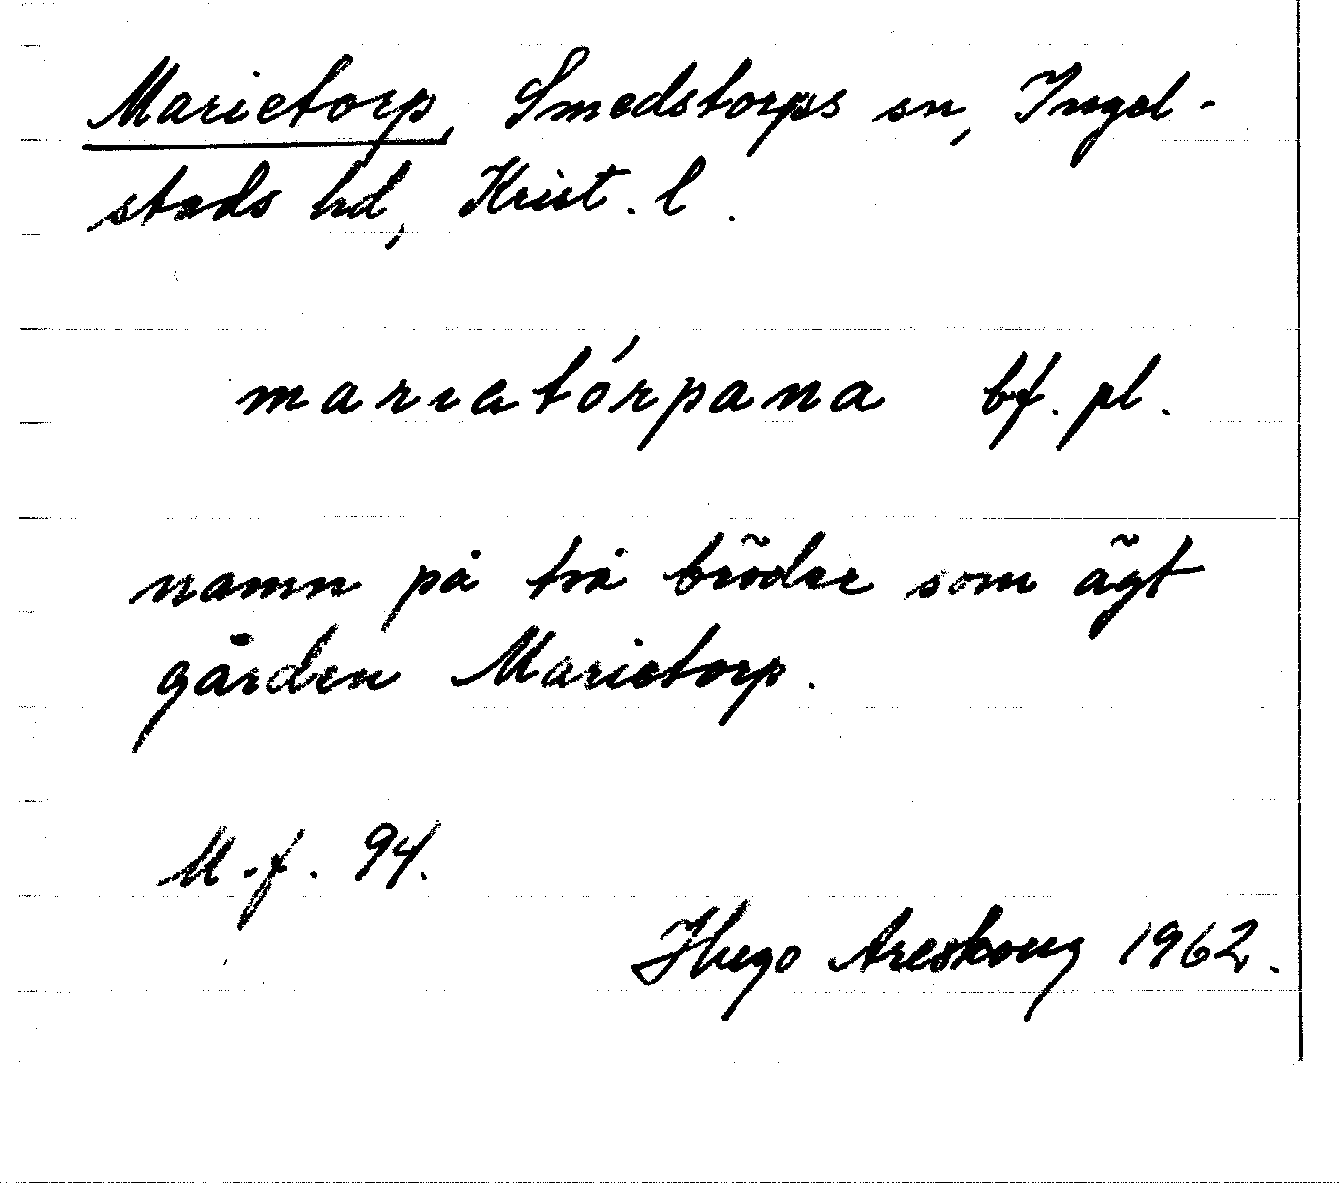 Marietorp, Smedstorps sn, Ingel-
stads hd, Krist. l.
marıatórpana bf. pl.
namn på två bröder som ägt
gården Marietorp.
M.f. 94.
Hugo Areskoug 1962.